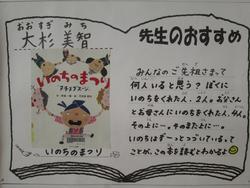 おおすぎ みち
大杉 美智
先生のおすすめ
いのちのまつり
ヌチヌグスージ
みんなのご先祖さまって
何人いると思う？ぼくに
いのちをくれた人、2人。お父さん
とお母さんにいのちをくれた人、4人。
その上に…。そのまた上に…。
いのちはずーっとつづいているって
ことが、この本を読むとわかるよ
いのちのまつり